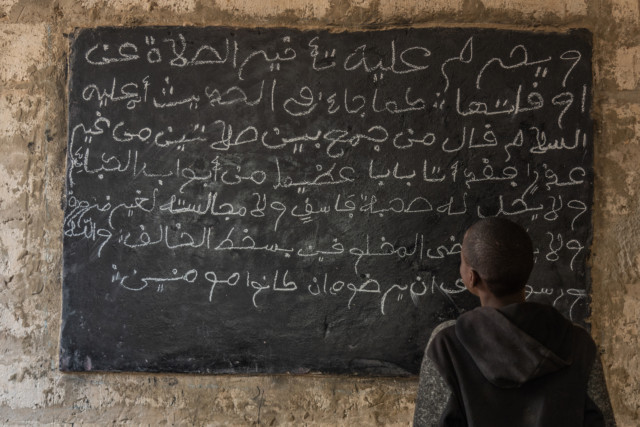 ويحرم عليه تأخير الصلاة عن
اوقاتها كما جاء في الحديث عليه
السلام قال من جمع بين صلاتين من غير
عذر فقد أتا بابا عظيما من أبواب الكبائر
ولا يحل له صحبة فاسق ولا مجالسته لغير
ولا المخلوقين بسخط الخالق والله
ان يرضوه ان كانوا مومنين